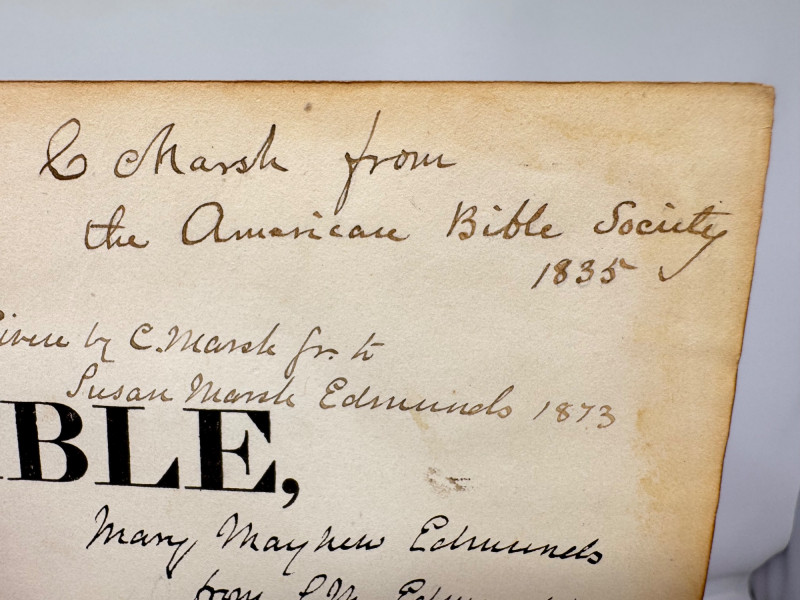 C Marsh from
the American Bible Society
1835
Given by C. Marsh Jr. to
Susan Marsh Edmunds 1873
BLE,
Mary Mayhew Edmunds
from S. M. Edmunds